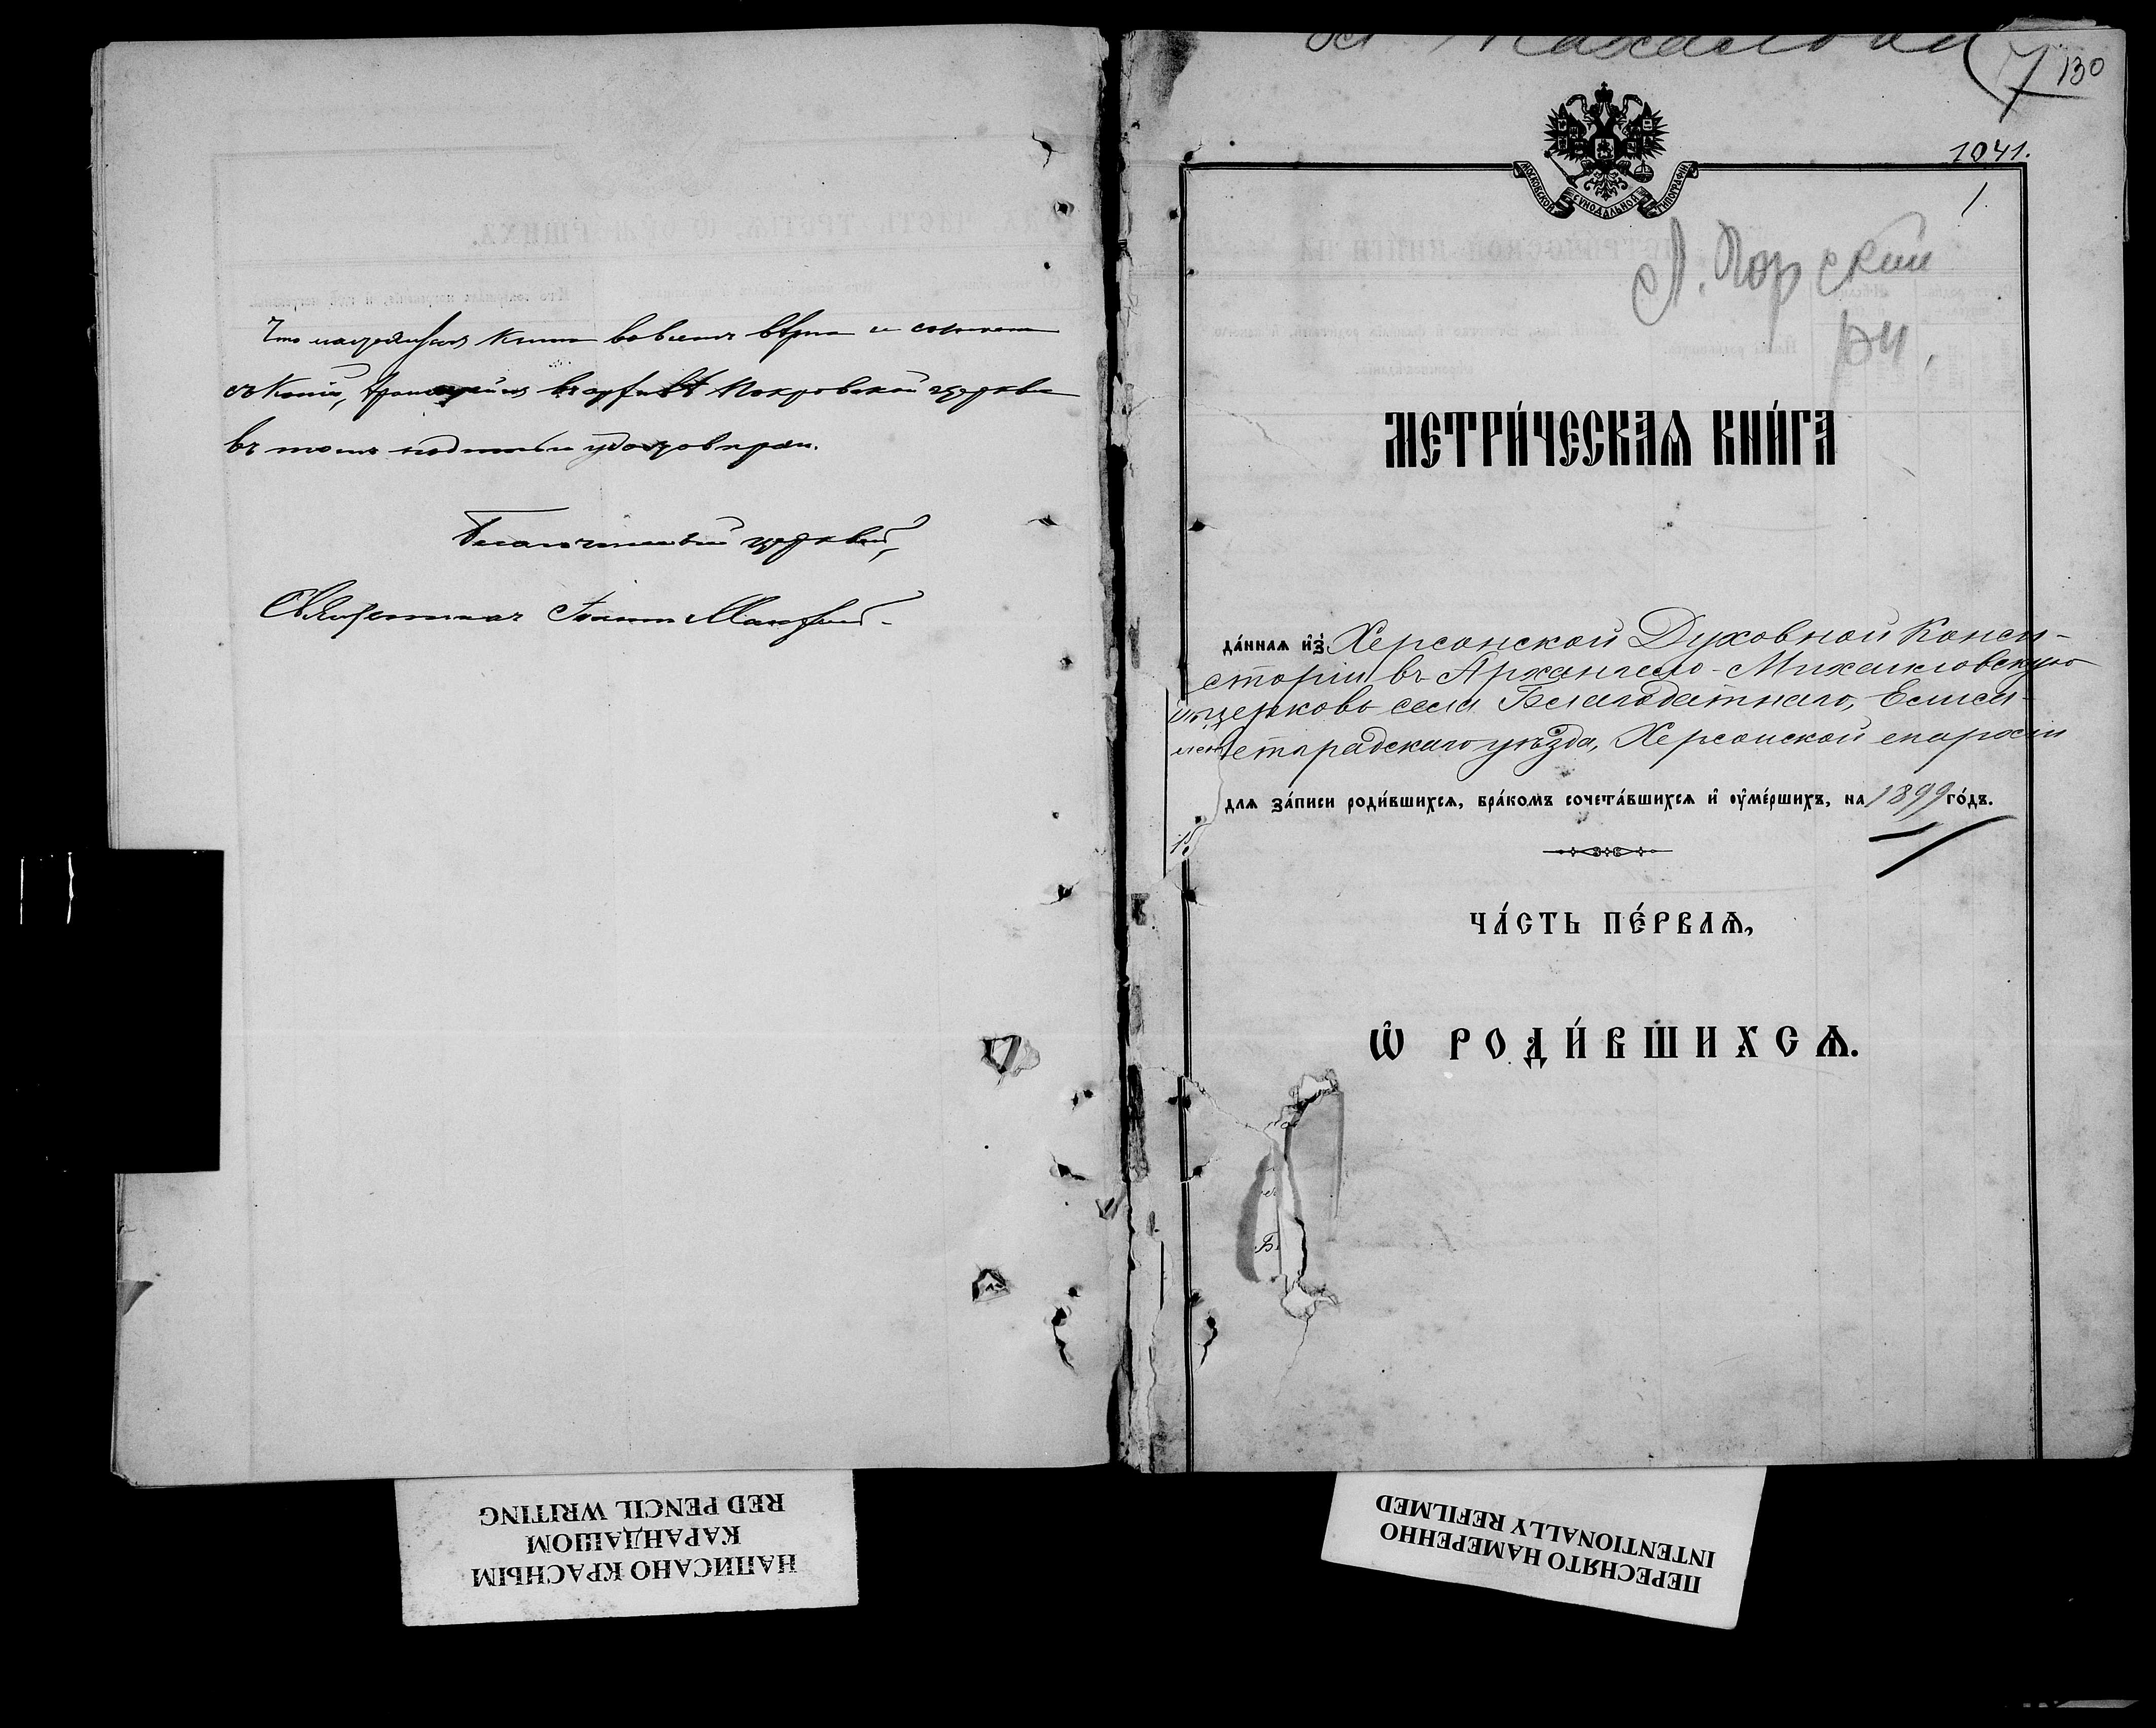 Что настоящая книга во всемъ вѣрна и согласна
съ копіею, хранящейся въ архивѣ Покровской церкви
въ томъ подписью удостовѣряю.
Благочинный церквей,
Священникъ Іоаннъ
7 130
1041.
1
МОСКОВСКОЙ СУНОДАЛЬНОЙ ТИПОГРАФІИ
МЕТРИ́ЧЕСКАѦ КНИ́ГА
да́ннаѧ и҆з̾ Херсонской Духовной Конси-
сторіи въ Архангело-Михаиловскую
церковь села Благодатнаго, Елиса-
ветградскаго уѣзда, Херсонской епархіи
длѧ за́писи роди́вшихсѧ, бра́комъ сочета́вшихсѧ и҆ ᲂу҆ме́ршихъ, на 1899 го́дъ.
ЧА́СТЬ ПЕ́РВАѦ,
Ѡ҆ РОДИ́ВШИХСѦ.
НАПИСАНО КРАСНЫМ
КАРАНДАШОМ
RED PENCIL WRITING
ПЕРЕСНЯТО НАМЕРЕННО
INTENTIONALLY REFILMED